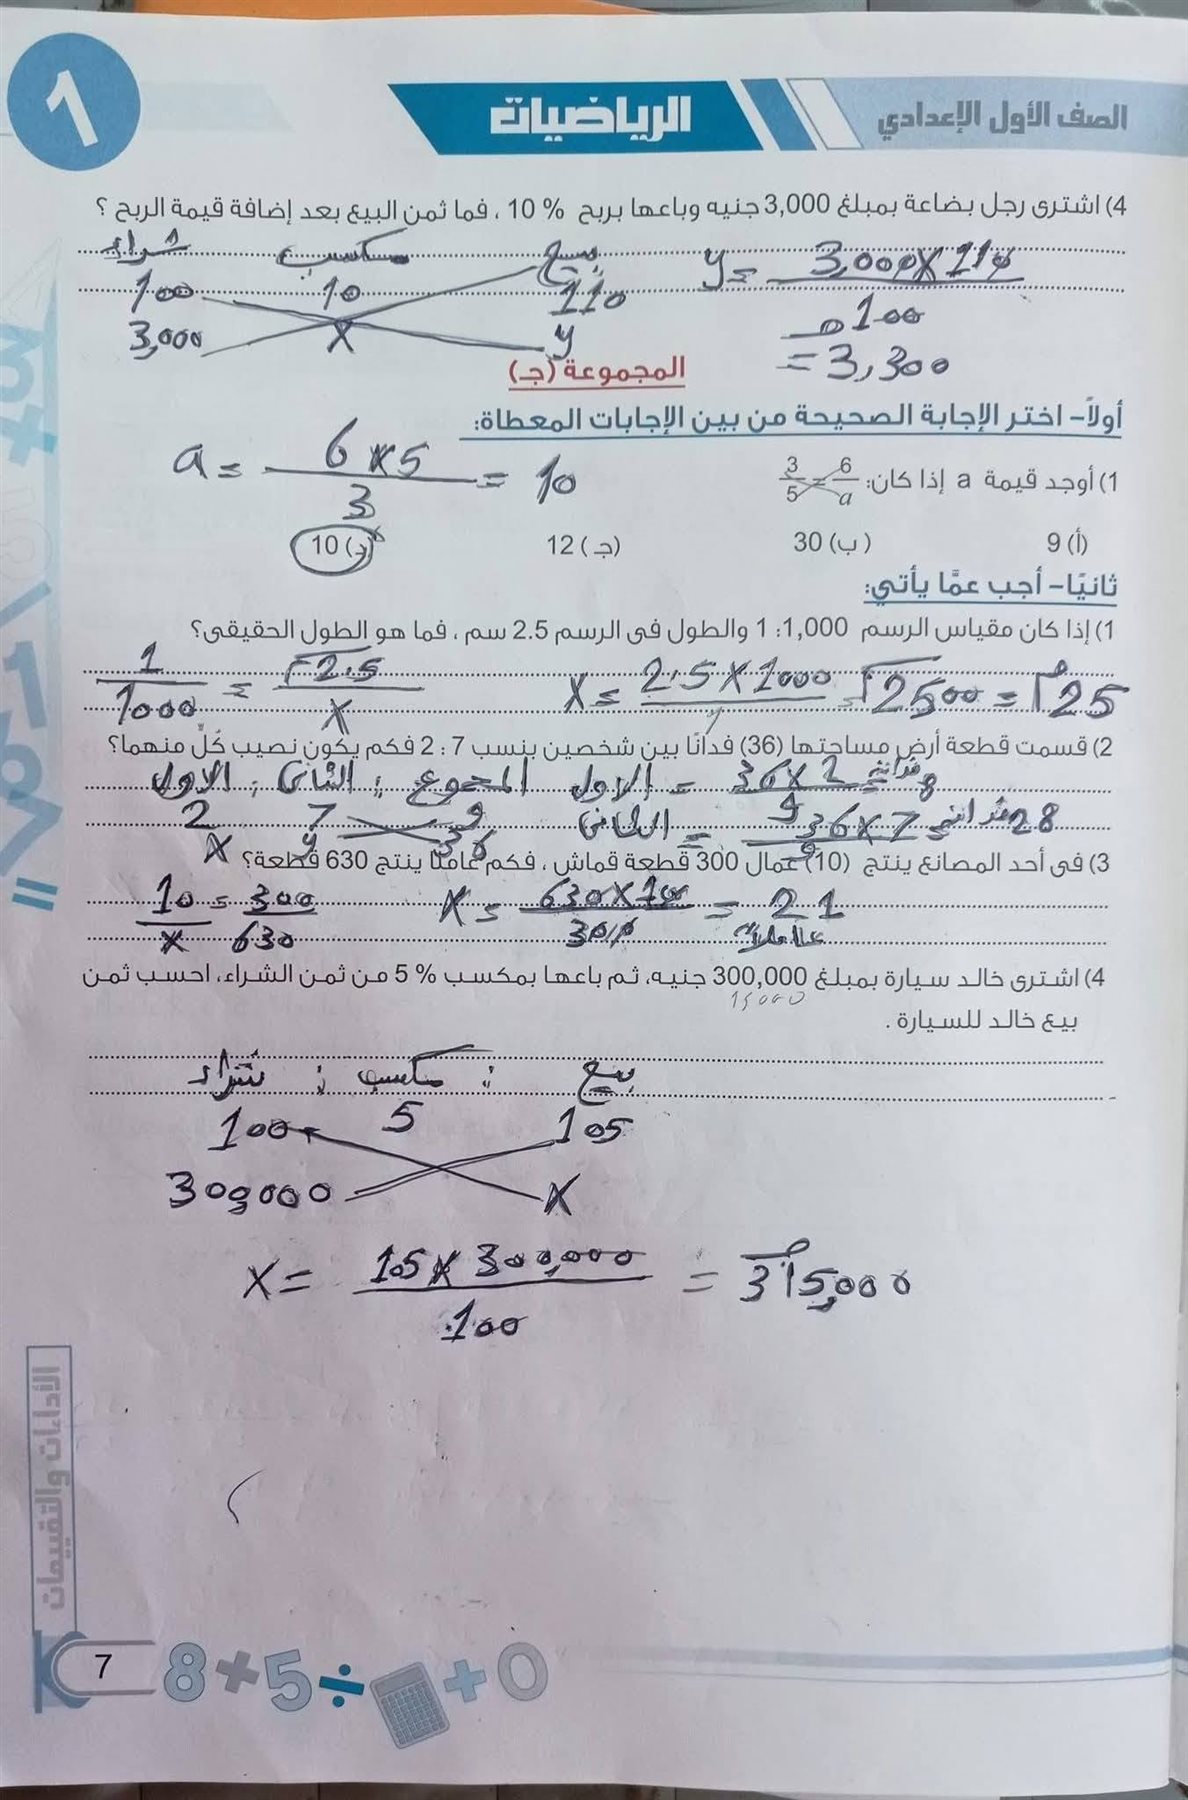 1
الرياضيات
الصف الأول الإعدادي
4) اشترى رجل بضاعة بمبلغ 3,000 جنيه وباعها بربح % 10 ، فما ثمن البيع بعد إضافة قيمة الربح ؟
شراء مكسب بيع
100 10 110
3,000 x y
y = 3,000 x 110
100
= 3,300
المجموعة (جـ)
أولاً- اختر الإجابة الصحيحة من بين الإجابات المعطاة:
1) أوجد قيمة a إذا كان: 3/5 = 6/a
a = 6 x 5 / 3 = 10
(أ) 9 (ب) 30 (جـ) 12 (د) 10
ثانيًا- أجب عمَّا يأتي:
1) إذا كان مقياس الرسم 1,000: 1 والطول فى الرسم 2.5 سم ، فما هو الطول الحقيقى؟
1/1000 = 2.5/x
x = 2.5 x 1000 / 1 = 2500 = 25 م
2) قسمت قطعة أرض مساحتها (36) فدانًا بين شخصين بنسب 7 : 2 فكم يكون نصيب كُلٍّ منهما؟
الاول : الثانى : المجموع
2 7 9
x y 36
الاول = 36 x 2 / 9 = 8
الثانى = 36 x 7 / 9 = 28
3) فى أحد المصانع ينتج (10) عمال 300 قطعة قماش ، فكم عاملًا ينتج 630 قطعة؟
10/x = 300/630
x = 630 x 10 / 300 = 21
عاملا
4) اشترى خالد سيارة بمبلغ 300,000 جنيه، ثم باعها بمكسب % 5 من ثمن الشراء، احسب ثمن
15000
بيع خالد للسيارة .
شراء : مكسب : بيع
100 5 105
300,000 x
x = 105 x 300,000 / 100 = 315,000
الأداءات والتقييمات
7
8+5÷ +0